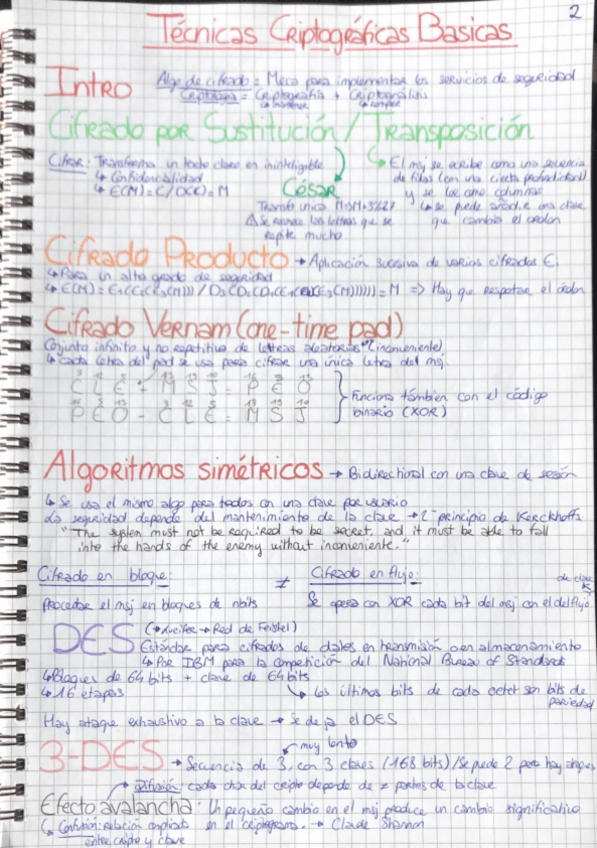 2
Técnicas Criptográficas Basicas
Intro
Algo de cifrado = Meca para implementar los servicios de seguridad
Criptología = Criptografía + Criptoanálisis
Cifrado por Sustitución / Transposición
Cifrar: Transforma un texto claro en ininteligible
↳ Confidencialidad
↳ E(M)=C / D(C)=M
César
Transfo unica
⚠ Se reconoce las letras que se
repite mucho
↳ El msj se escribe como una secuencia
de filas (con una cierta profundidad)
y se lee como columnas
↳ se puede añadir una clave
que cambia el orden
Cifrado Producto → Aplicación sucesiva de varios cifrados E.
↳ Para un alto grado de seguridad
= M => Hay que respetar el orden
Cifrado Vernam (one-time pad)
Conjunto infinito y no repetitivo de letras aleatorias (inconveniente)
↳ cada letra del pad se usa para cifrar una única letra del msj.
C L E + M S J = P E O
P E O - C L E = M S J
Funciona también con el código
binario (XOR)
Algoritmos simétricos → Bidirectional con una clave de sesión
↳ Se usa el mismo algo para todos con una clave por usuario
La seguridad depende del mantenimiento de la clave → 2º principio de Kerckhoffs
"The system must not be required to be secret, and it must be able to fall
into the hands of the enemy without inconvenience."
Cifrado en bloque: ≠ Cifrado en flujo:
Procesar el msj en bloques de nbits
Se opera con XOR cada bit del msj con el del flujo de clave
DES (→ Lucifer → Red de Feistel)
Estándar para cifrados de datos en transmisión o en almacenamiento
↳ Por IBM para la competición del National Bureau of Standards
↳ Bloques de 64 bits + clave de 64 bits
↳ 16 etapas
↳ los últimos bits de cada octet son bits de
pariedad
Hay ataque exhaustivo a la clave → Se deja el DES
muy lento
3-DES → Secuencia de 3, con 3 claves (168 bits) / Se puede 2 pero hay ataques
→ Difusión: cada char del cripto depende de ≠ partes de la clave
Efecto avalancha: Un pequeño cambio en el msj produce un cambio significativo
en el criptograma. → Claude Shannon
↳ Confusión: relación complicada
entre cripto y clave